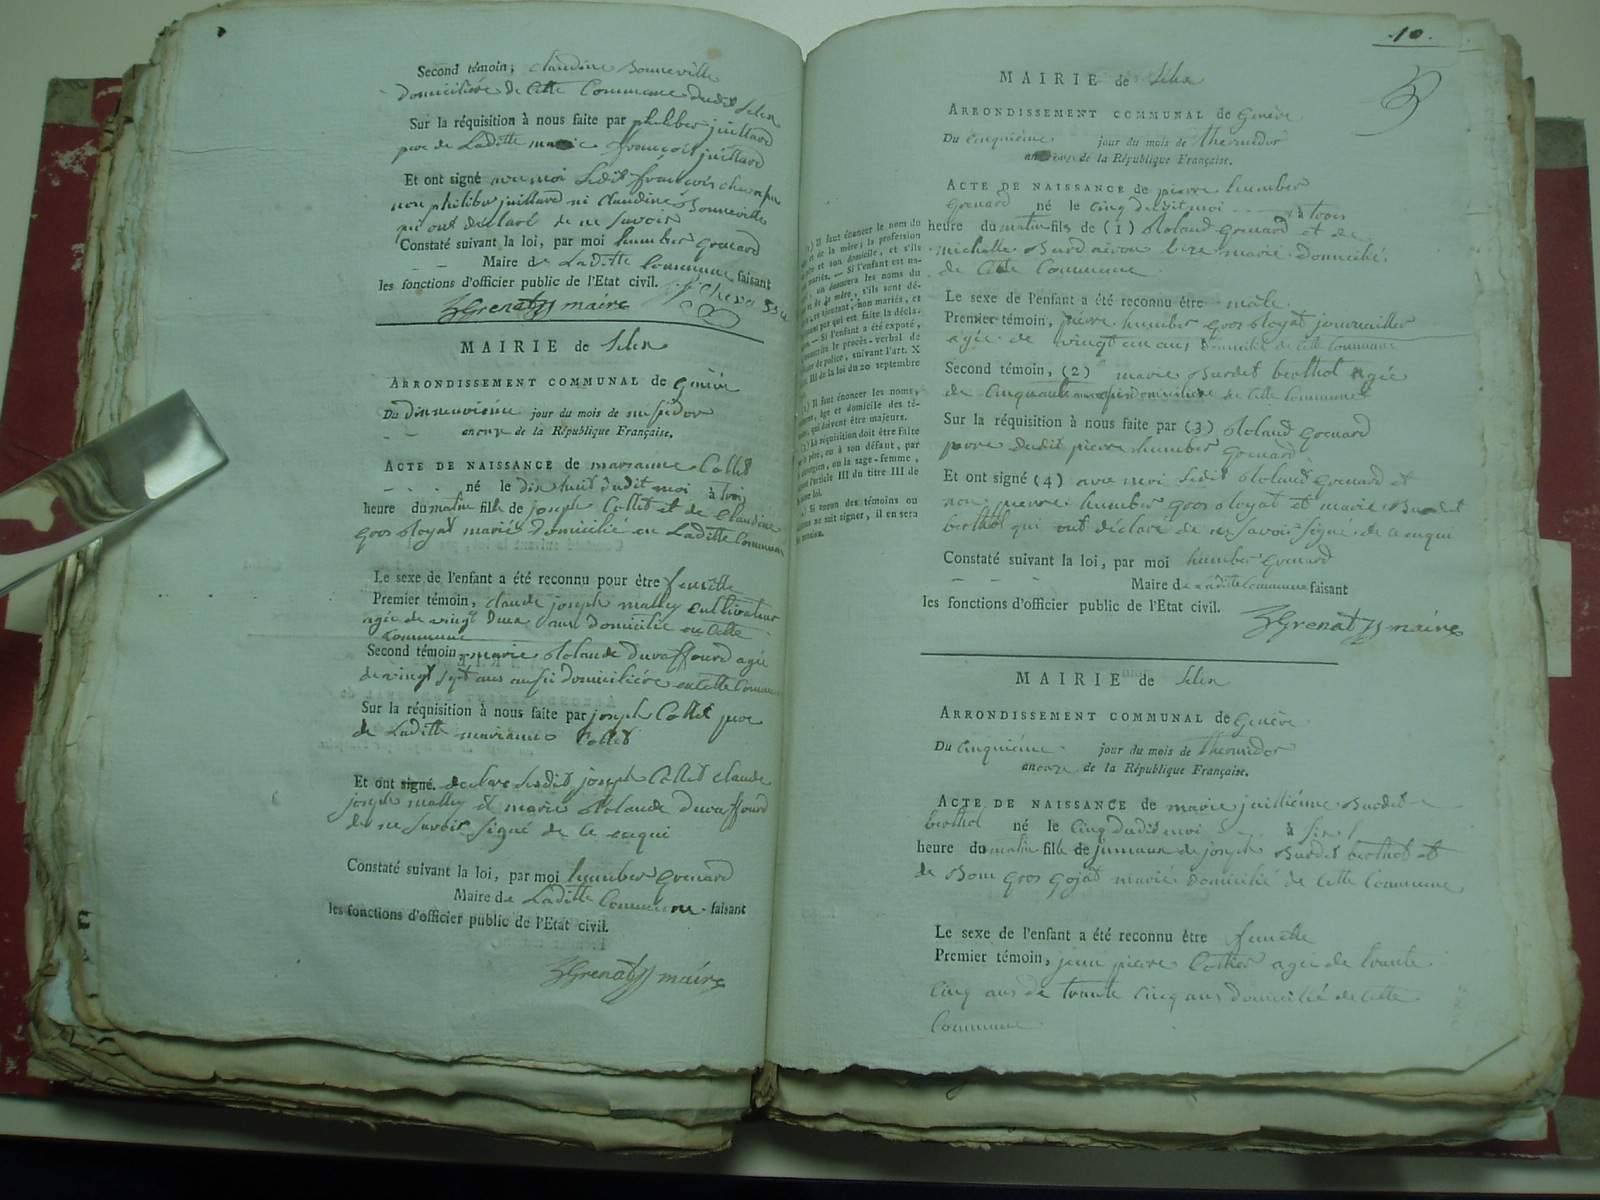 Second témoin, claudine Bonneville
domicilière de Cette Commune dudit Lelex
Sur la réquisition à nous faite par philiber juillard
pere de Laditte françois juillard
Et ont signé avec moi Ledit françois
non philiber juillard ni claudine Bonneville
qui ont déclaré de ne savoir
Constaté suivant la loi, par moi humber grenard
Maire de Laditte Commune faisant
les fonctions d'officier public de l'Etat civil.
Grenard maire
MAIRIE de Lelex
ARRONDISSEMENT COMMUNAL de Genève
Du dixneuvième jour du mois de messidor
an onze de la République Française.
ACTE DE NAISSANCE de marianne Collet
né le dix huit dudit moi à trois
heure du matin fille de joseph Collet et de Claudine
gros Goyat mariés domicilié en Laditte Commune
Le sexe de l'enfant a été reconnu pour être femelle
Premier témoin, claude joseph mathey cultivateur
agée de vingt deux ans domicilié en Cette
Commune
Second témoin, marie Rolande duraffourd agée
de vingt sept ans aussi domicilière en cette Commune
Sur la réquisition à nous faite par joseph Collet pere
de Laditte marianne Collet
Et ont signé. declare Lesdits joseph Collet claude
joseph mathey et marie Rolande duraffourd
de ne savoir signé de ce enqui
Constaté suivant la loi, par moi humber grenard
Maire de Laditte Commune faisant
les fonctions d'officier public de l'Etat civil.
Grenard maire
10.
MAIRIE de Lelex
ARRONDISSEMENT COMMUNAL de Genève
Du cinquième jour du mois de thermidor
an onze de la République Française.
ACTE DE NAISSANCE de pierre humber
Grenard né le cinq dudit moi à trois
heure du matin fils de (1) Roland grenard et de
michelle mariés Domicilié
de Cette Commune
Le sexe de l'enfant a été reconnu être mâle
Premier témoin, pierre humber gros Goyat journailler
agée de vingt un ans domicilié de Cette Commune
Second témoin, (2) marie Burdet berthet agée
de Cinquante domicilière de Cette Commune
Sur la réquisition à nous faite par (3) Roland grenard
pere dudit pierre humber grenard
Et ont signé (4) avec moi Ledit Roland grenard et
non pierre humber gros Goyat et marie Burdet
berthet qui ont déclaré de ne savoir signé de ce enqui
Constaté suivant la loi, par moi humber grenard
Maire de Laditte Commune faisant
les fonctions d'officier public de l'Etat civil.
Grenard maire
Il faut énoncer le nom du
et de la mère; la profession
et son domicile, et s'ils
mariés. — Si l'enfant est
énoncera les noms du
mère, s'ils sont
en ajoutant, non mariés, et
par qui est faite la décla-
— Si l'enfant a été exposé,
le procès-verbal de
de police, suivant l'art. X
III de la loi du 20 septembre
Il faut énoncer les noms,
âge et domicile des té-
qui doivent être majeurs.
réquisition doit être faite
père, ou à son défaut, par
ou la sage-femme,
l'article III du titre III de
loi.
Si aucun des témoins ou
ne sait signer, il en sera
mention.
MAIRIE de Lelex
ARRONDISSEMENT COMMUNAL de Genève
Du cinquième jour du mois de thermidor
an onze de la République Française.
ACTE DE NAISSANCE de marie juillienne Burdet
berthet né le cinq dudit moi à six
heure du matin fille de jumaux de joseph Burdet berthet et
de gros gojat mariés domicilié de Cette Commune
Le sexe de l'enfant a été reconnu être femelle
Premier témoin, jean pierre agée de trente
Cinq ans de trente cinq ans domicilié de Cette
Commune